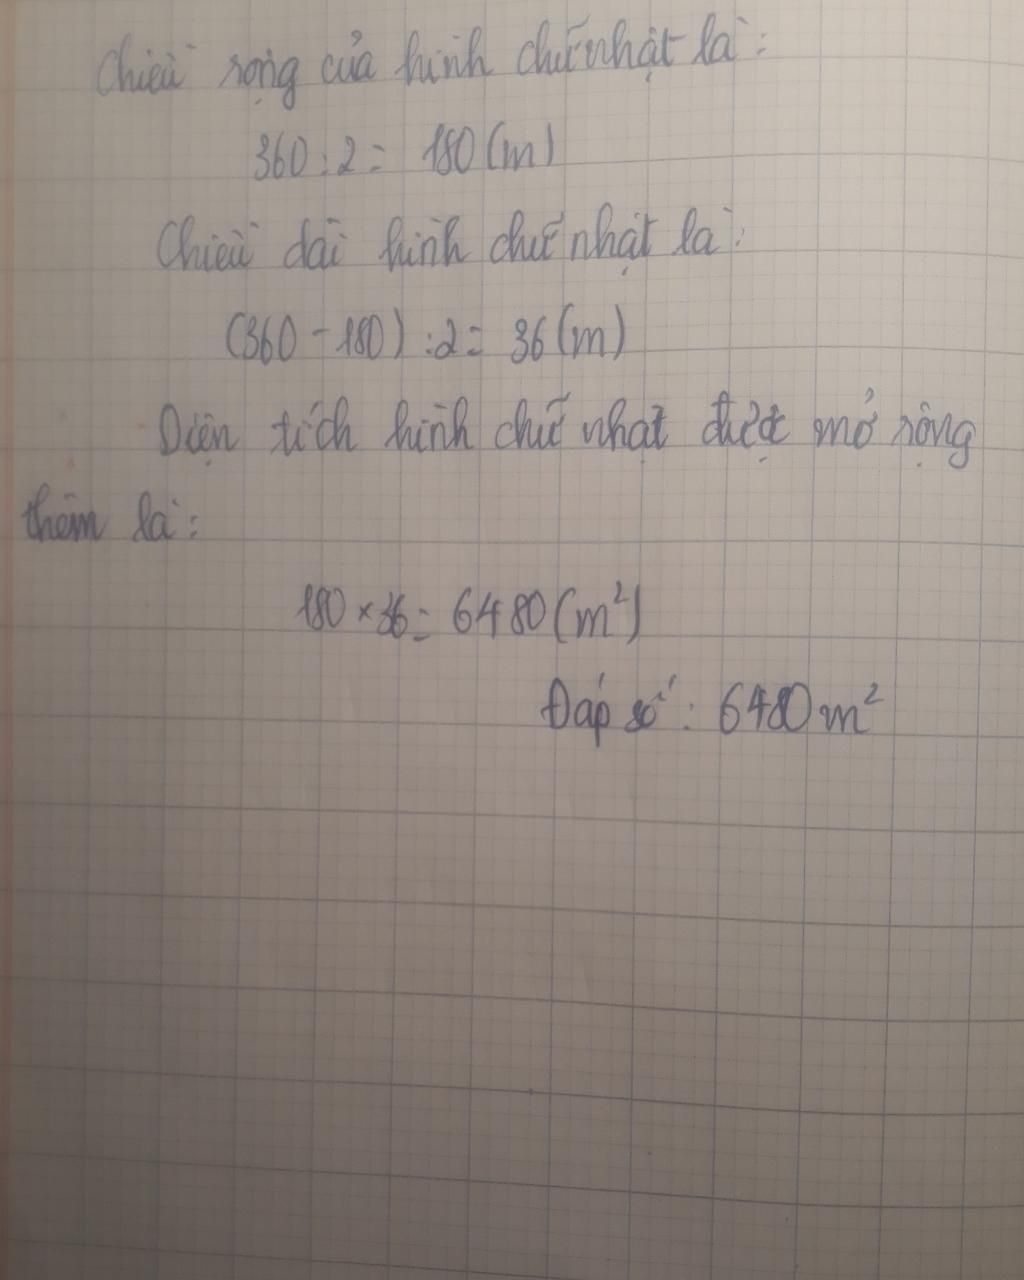 Chiều rộng của hình chữ nhật là:
360 : 2 = 180 (m)
Chiều dài hình chữ nhật là:
(360 - 180) : 2 = 36 (m)
Diện tích hình chữ nhật được mở rộng
thêm là:
180 × 36 = 6480 (m²)
Đáp số : 6480 m²